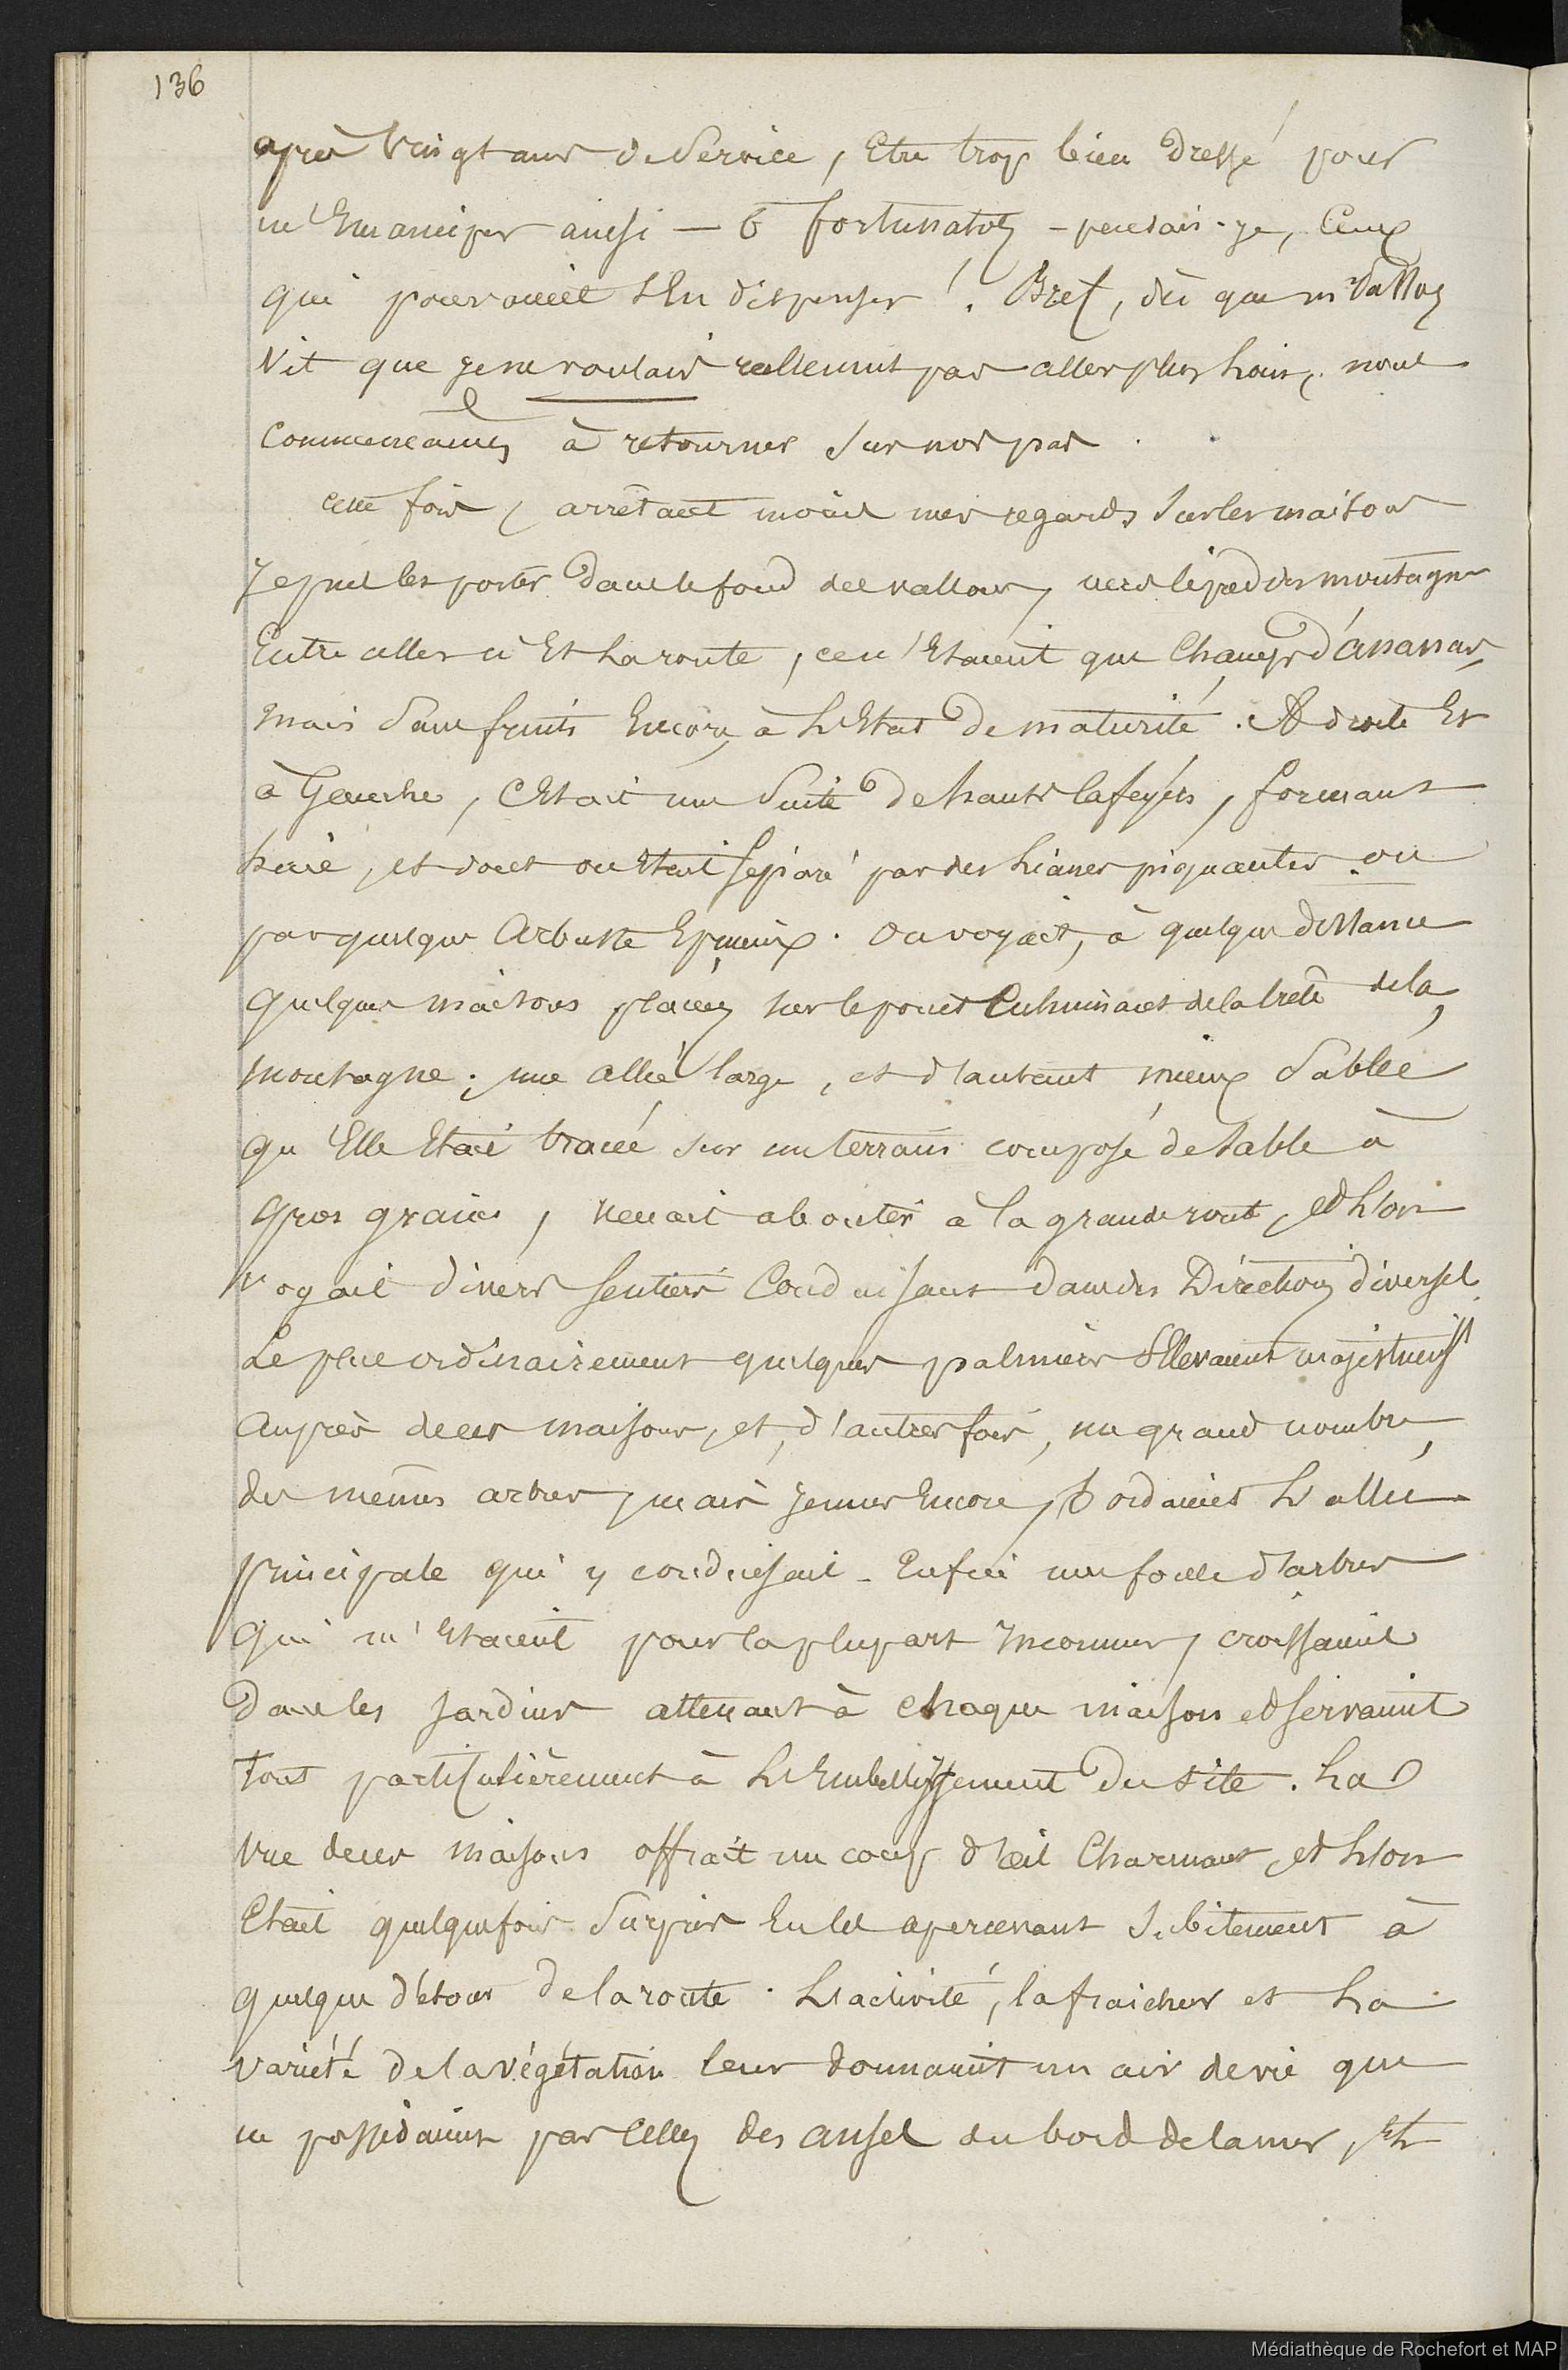 136
après vingt ans de service, Etre trop bien dressé pour
m'Emanciper ainsi — ô fortunatos – pensais-je, Ceux
qui pouvaient s'En dispenser ! . Bref, dès que mr
vit que je ne voulais réellement pas aller plus loin, nous
commençames à retourner sur nos pas .
cette fois, arrêtant moins mes regards sur les maisons
Je pus les porter dans le fond des vallons, vers le pied des montagnes
Entre celles ci Et la route, ce n'Etaient que Champs d'ananas,
mais sans fruits Encore, à l'Etat de maturité . A droite Et
à Gauche, c'Etait une suite de hauts cafeyers, formant
haie, et dont on Etait séparé par des lianes piquantes ou
par quelque Arbuste Epineux . on voyait, à quelque distance
quelques maisons placées sur le point Culminant de la crète de la
montagne ; une allée large, et d'autant mieux sablée
qu'Elle Etait tracée sur un terrain composé de sable à
gros grains, venait aboutir à la grande route, et l'on
voyait divers sentiers Conduisant dans des Directions diverses.
Le plus ordinairement quelques palmiers s'Elevaient majestueusst
Auprès de ces maisons, et, d'autres fois, un grand nombre
des mêmes arbres, mais jeunes Encore, bordaient l'allée
principale qui y conduisait – Enfin une foule d'arbres
qui m'Etaient pour la plupart Inconnus, croissaient
Dans les jardins attenant à chaque maison et servaient
tout particulièrement à l'Embellissement du site . La
vue de ces maisons offrait un coup d'œil Charmant, et l'on
Etait quelquefois surpris En les apercevant subitement à
quelque détour de la route . L'activité, la fraicheur et La
variété de la végétation leur donnaient un air de vie que
ne possédaient pas Celles des anses du bord de la mer, Et
Médiathèque de Rochefort et MAP